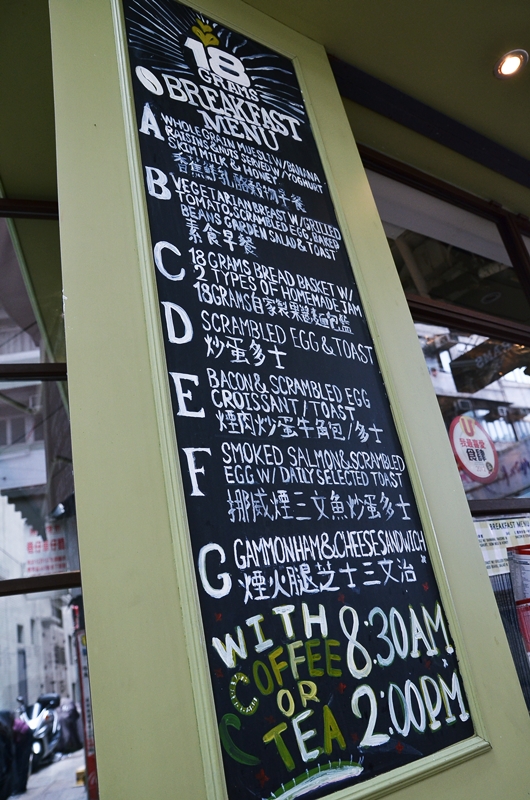 18
GRAMS
BREAKFAST
MENU
A
WHOLEGRAIN MUESLI W/BANANA
RAISINS & NUT SERVED W/
SKIM MILK & HONEY / YOGHURT
B
VEGETARIAN BREAST W/GRILLED
TOMATO, SCRAMBLED EGG, BAKED
BEANS GARDEN SALAD & TOAST
素食早餐
C
18 GRAMS BREAD BASKET W/
2 TYPES OF HOMEMADE JAM
18GRAMS自家製果醬麵包籃
D
SCRAMBLED EGG & TOAST
炒蛋多士
E
BACON & SCRAMBLED EGG
CROISSANT / TOAST
煙肉炒蛋牛角包/多士
F
SMOKED SALMON & SCRAMBLED
EGG W/ DAILY SELECTED TOAST
挪威煙三文魚炒蛋多士
G
GAMMONHAM & CHEESE SANDWICH
煙火腿芝士三文治
WITH
COFFEE
OR
TEA
8:30AM
2:00PM
BREAKFAST MENU